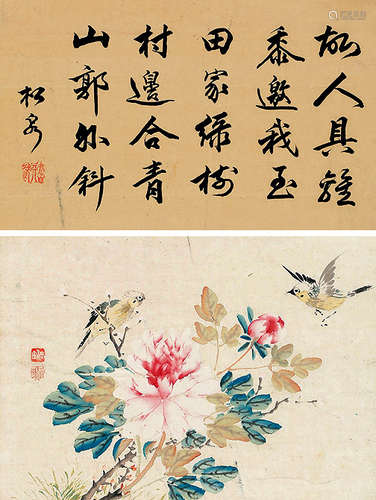 故人具雞
黍邀我至
田家綠樹
村邊合青
山郭外斜
松